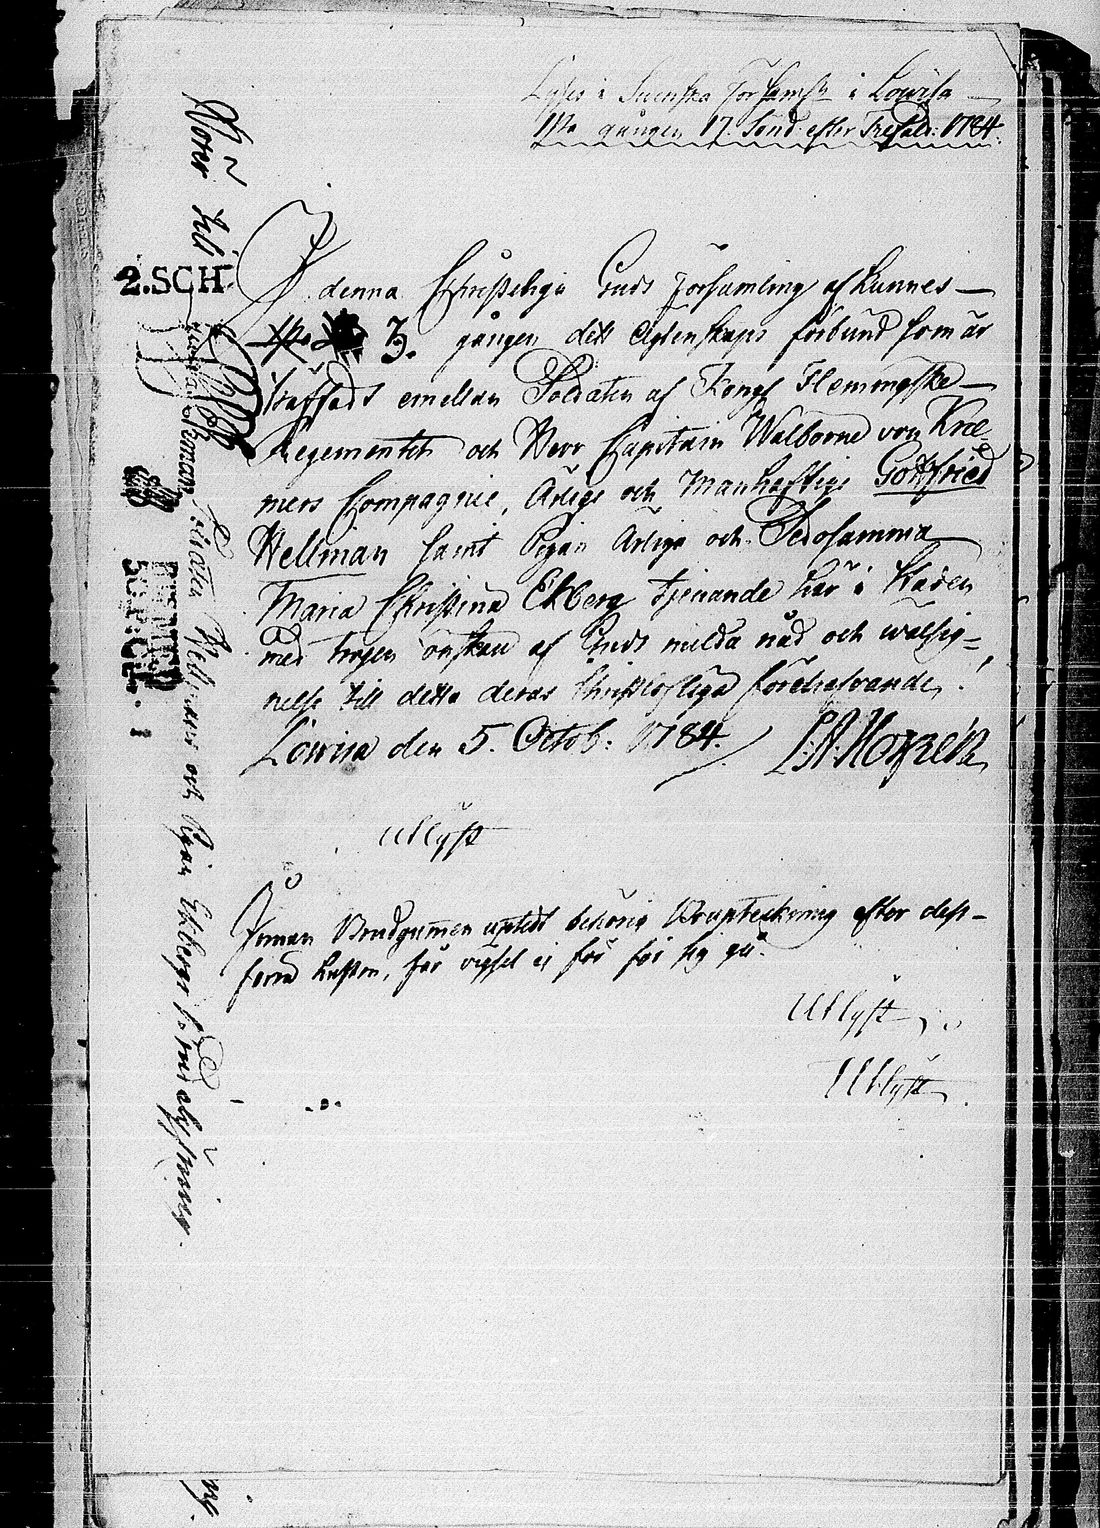 Lyses i Svenska Församl: i Lowisa
1sta gången 17. Sönd: efter Trefald: 1784.
2.SCH.
I denna Christeliga Guds Församling afkunnes
3. gången dett Ägtenskaps förbund som är
träffadt emellan Soldaten af Kongl Flemingske
Regementet och Herr Capitain Walborne von Kræ-
mers Compagnie, Ärlige och Manhaftige Gottfried
Hellman samt Pigan Ärliga och Dedosamma
Maria Christina Ekberg tjenande här i Staden
med trogen önskan af Guds milda nåd och wälsig-
nelse till detta deras Christlofliga företagande.
Lowisa den 5. Octob: 1784.
Utlyst
Innan Brudgummen uptedt behörig Bouptekning efter dess
förra hustru, får vigsel ej för sig gå.
Utlyst
Utlyst
Noter till
Soldaten Hellmans och Pigan Ekbergs lysning.